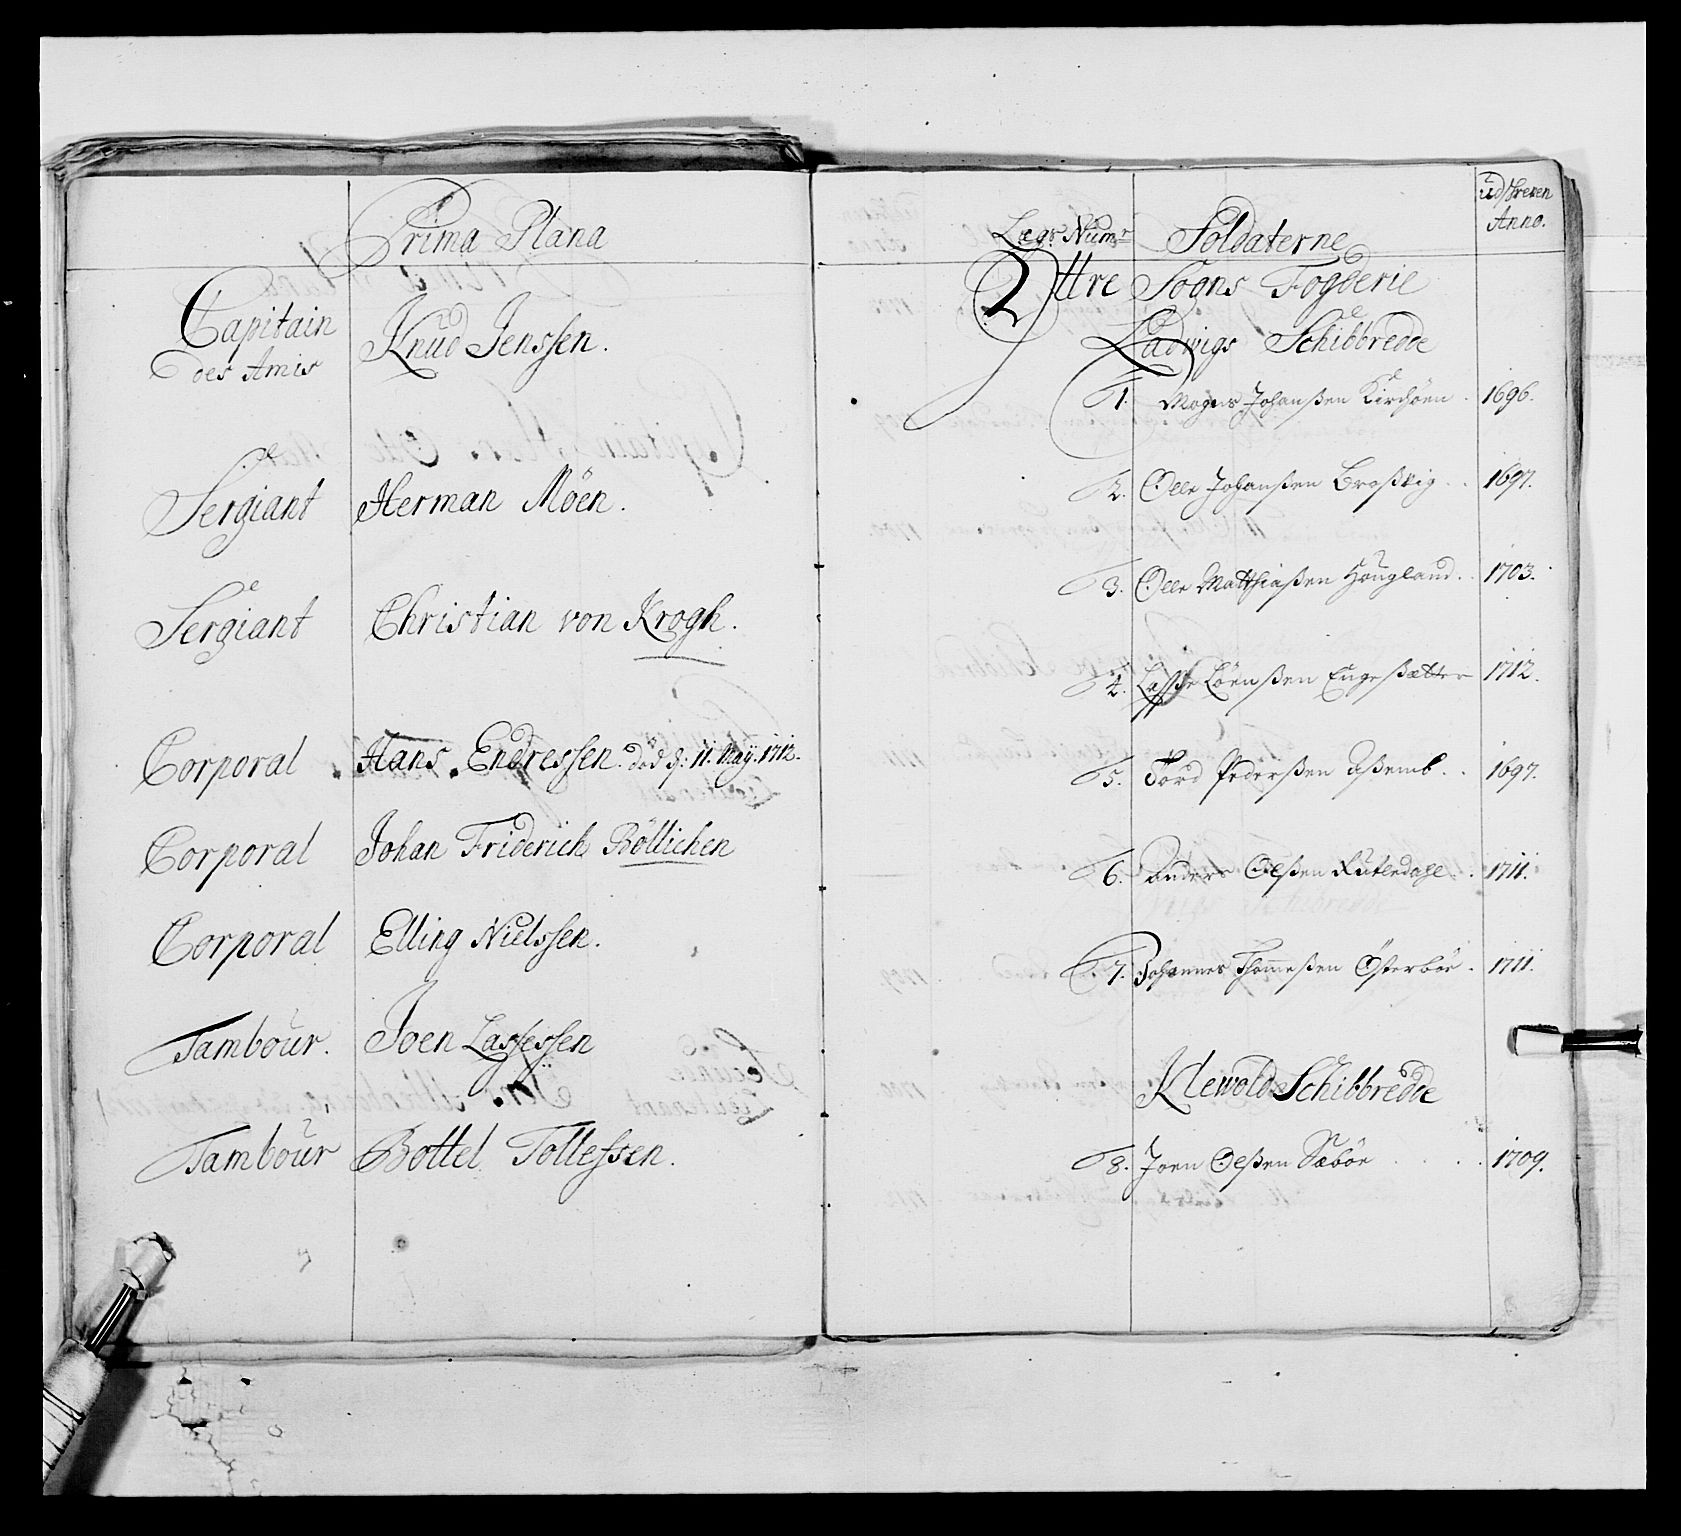 Prima Plana
Capitain des Amis Knud Jenssen.
Sergiant Herman Möen.
Sergiant Christian von Krogh.
Corporal Hans Endressen. död d: 11. May. 1712.
Corporal Johan Friderich Böllichen
Corporal Elling Nielssen.
Tambour. Joen Lassessen
Tambour Bottel Tollefssen.
Lægs Numr Soldaterne Udskreven Anno.
Yttre Sogns Fogderie
Ladwigs Schibbredde
1. Mogns Johanßen Kirchöen. 1696.
2. Olle Johanßen Broßvig. 1697.
3. Olle Matthiaßen Hougland. 1703.
4. Lasse Löenßen Engeßætter 1712.
5. Tord Pederßen 1697.
6. Anders Olßen Rutledahl. 1711.
7. Johannes Thommeßen Österböe. 1711.
Klewold Schibbredde
8. Joen Olßen Næböe 1709.